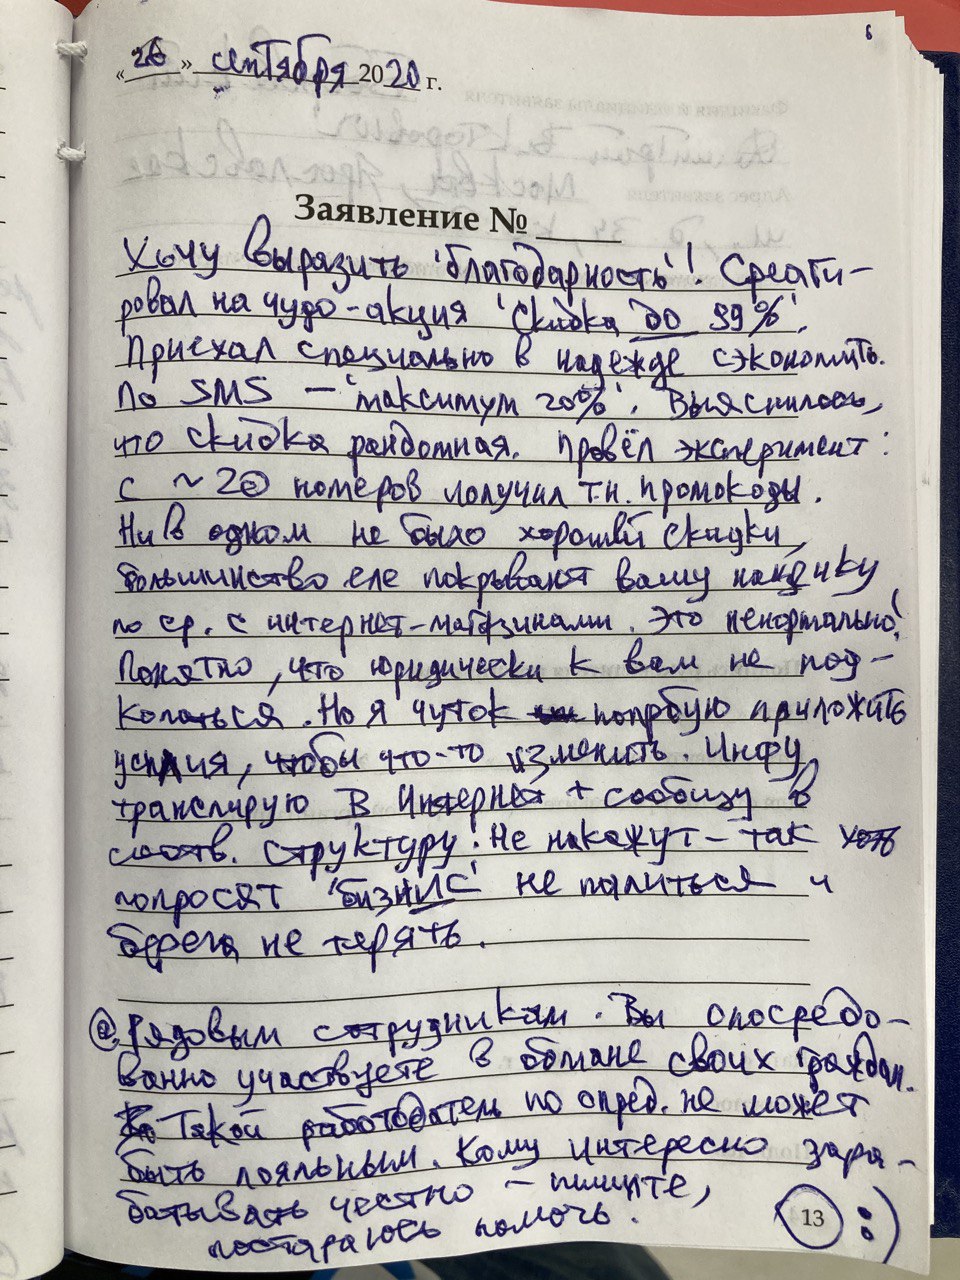 6
«26» сентября 2020 г.
Заявление №
Хочу выразить 'благодарность'! Среаги-
ровал на чудо-акция 'Скидка до 99%'.
Приехал специально в надежде сэкономить.
По SMS – 'максимум 20%'. Выяснилось,
что скидка рандомная. Провёл эксперимент:
с ~20 номеров получил т.н. промокоды.
Ни в одном не было хорошей скидки,
большинство еле покрывают вашу наценку
по ср. с интернет-магазинами. Это ненормально!
Понятно, что юридически к вам не под-
копаться. Но я чуток попробую приложить
усилия, чтобы что-то изменить. Инфу
транслирую в Интернет + сообщу в
соотв. структуру! Не накажут – так хоть
попросят 'бизНИС' не палиться и
берега не терять.
@ Рядовым сотрудникам. Вы опосредо-
ванно участвуете в обмане своих граждан.
Такой работодатель по опред. не может
быть лояльным. Кому интересно зара-
батывать честно – пишите,
постараюсь помочь.
13 :)